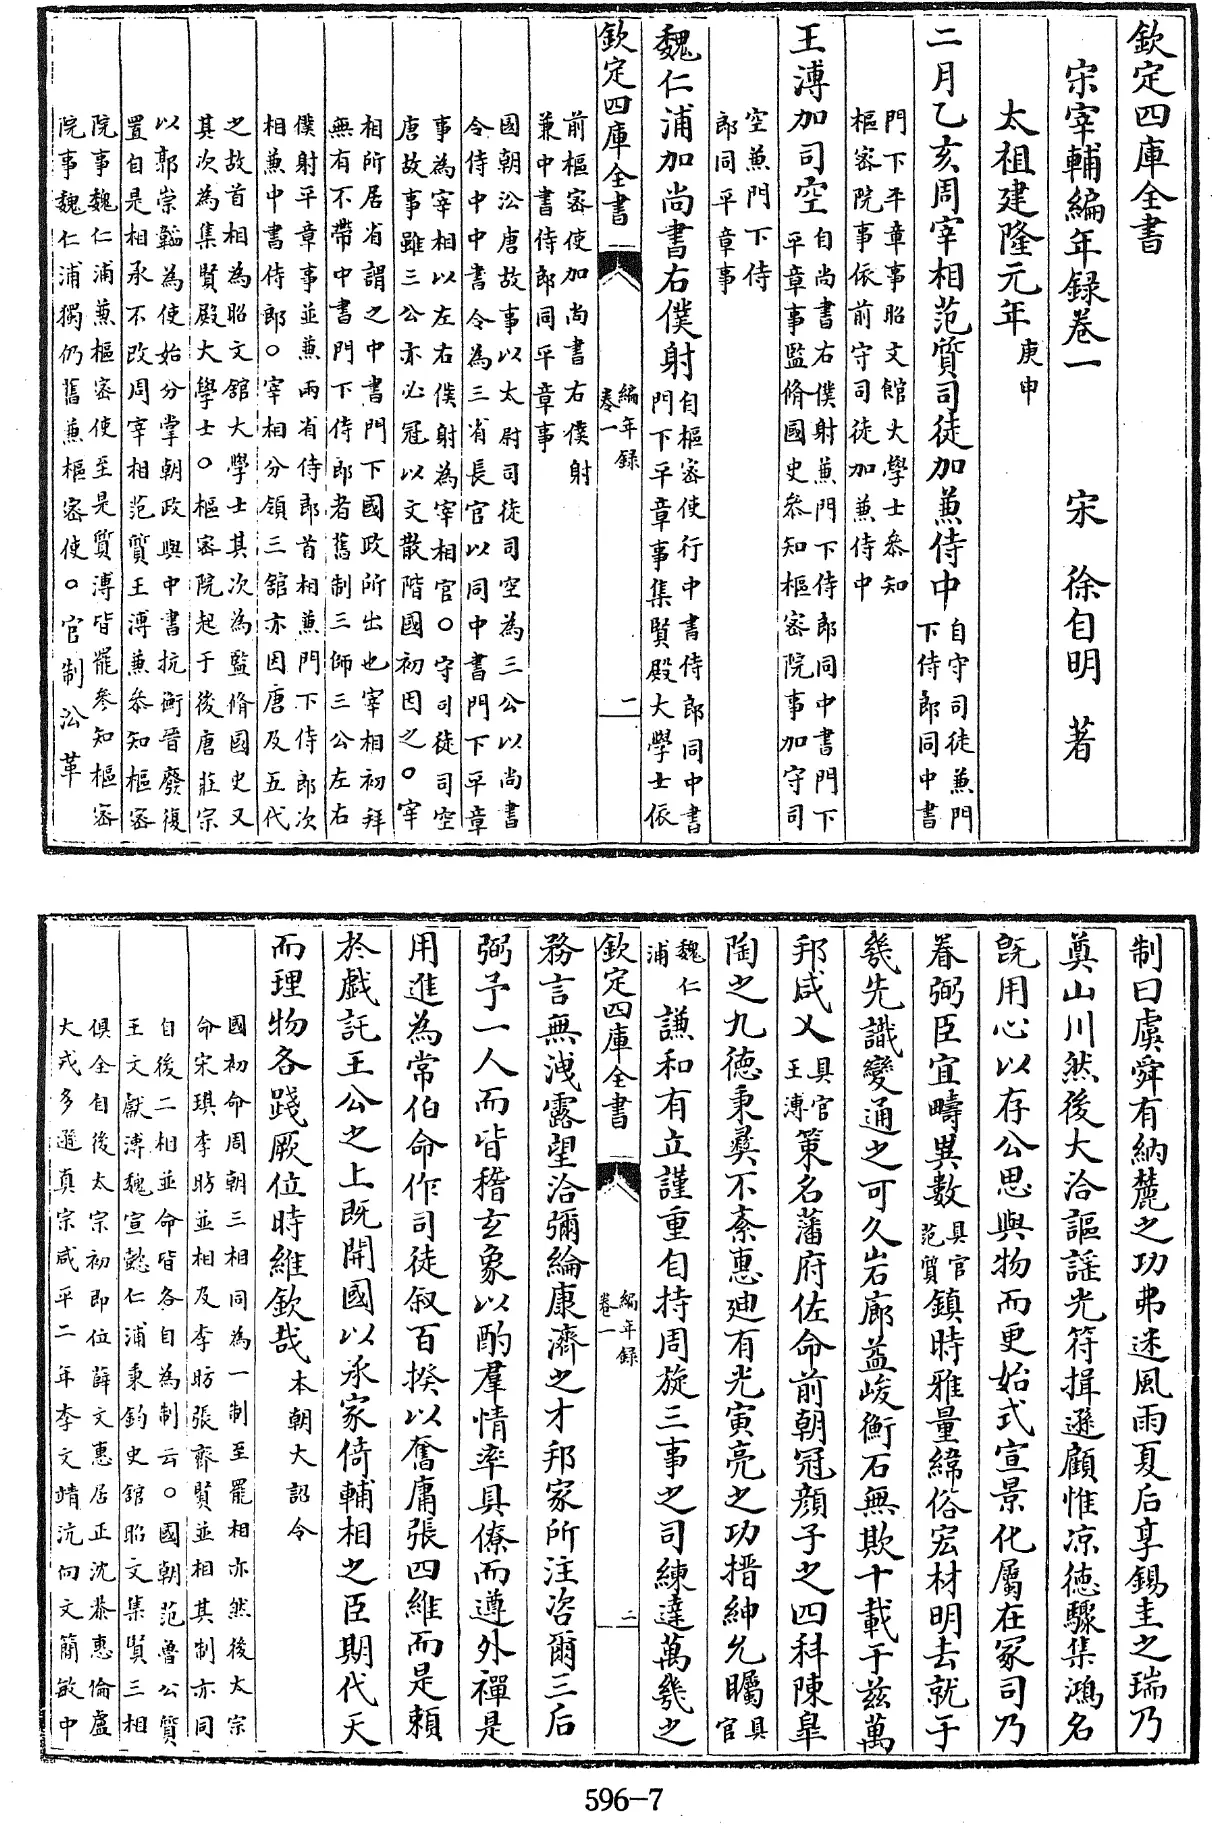 欽定四庫全書
宋宰輔編年録卷一 宋 徐自明 著
太祖建隆元年庚申
二月乙亥周宰相范質司徒加兼侍中自守司徒兼門
下侍郎同中書
門下平章事昭文館大學士叅知
樞密院事依前守司徒加兼侍中
王溥加司空自尚書右僕射兼門下侍郎同中書門下
平章事監脩國史叅知樞密院事加守司
空兼門下侍
郎同平章事
魏仁浦加尚書右僕射自樞密使行中書侍郎同中書
門下平章事集賢殿大學士依
欽定四庫全書 編年録 卷一 一
前樞密使加尚書右僕射
兼中書侍郎同平章事
國朝沿唐故事以太尉司徒司空為三公以尚書
令侍中中書令為三省長官以同中書門下平章
事為宰相以左右僕射為宰相官○守司徒司空
唐故事雖三公亦必冠以文散階國初因之○宰
相所居省謂之中書門下國政所出也宰相初拜
無有不帶中書門下侍郎者舊制三師三公左右
僕射平章事並兼兩省侍郎首相兼門下侍郎次
相兼中書侍郎○宰相分領三館亦因唐及五代
之故首相為昭文館大學士其次為監脩國史又
其次為集賢殿大學士○樞密院起于後唐莊宗
以郭崇韜為使始分掌朝政與中書抗衡晉廢復
置自是相承不改周宰相范質王溥兼叅知樞密
院事魏仁浦兼樞密使至是質溥皆罷叅知樞密
院事魏仁浦獨仍舊兼樞密使○官制沿革
制曰虞舜有納麓之功弗迷風雨夏后享錫圭之瑞乃
奠山川然後大洽謳謡光符揖遜顧惟凉徳驟集鴻名
旣用心以存公思與物而更始式宣景化屬在冢司乃
眷弼臣宜疇異數具官
范質鎮時雅量緯俗宏材明去就于
幾先識變通之可久岩廊益峻衡石無欺十載于兹萬
邦咸乂具官
王溥策名藩府佐命前朝冠顔子之四科陳臯
陶之九徳秉彛不紊惠廸有光寅亮之功搢紳允矚具
官
魏仁
浦謙和有立謹重自持周旋三事之司練達萬幾之
欽定四庫全書 編年録 卷一 二
務言無洩露望洽彌綸康濟之才邦家所注咨爾三后
弼予一人而皆稽玄象以酌羣情率具僚而遵外禪是
用進為常伯命作司徒叙百揆以奮庸張四維而是頼
於戲託王公之上旣開國以承家倚輔相之臣期代天
而理物各踐厥位時維欽哉本朝大詔令
國初命周朝三相同為一制至罷相亦然後太宗
命宋琪李昉並相及李昉張齊賢並相其制亦同
自後二相並命皆各自為制云○國朝范魯公質
王文獻溥魏宣懿仁浦秉鈞史館昭文集賢三相
俱全自後太宗初即位薛文惠居正沈恭惠倫盧
大戎多遜真宗咸平二年李文靖沆向文簡敏中
596-7